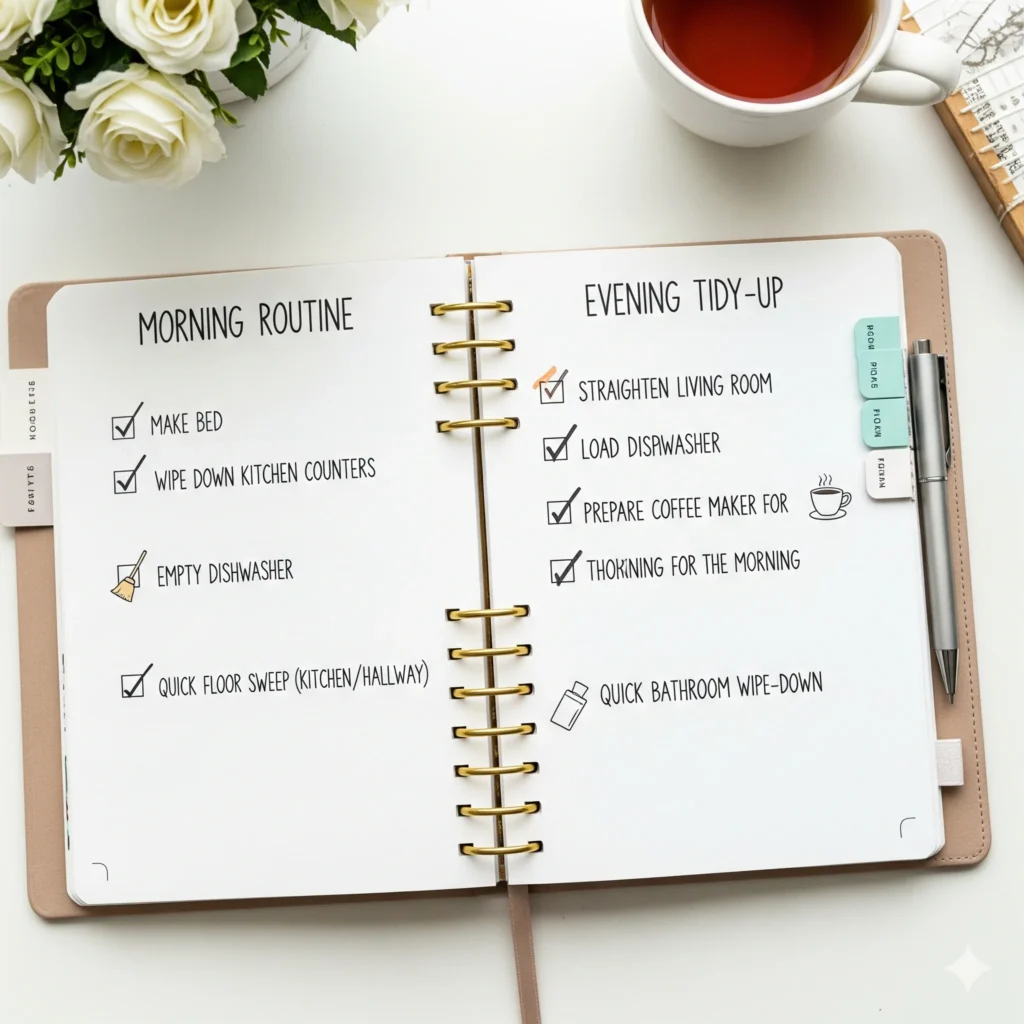 MORNING ROUTINE
MAKE BED
WIPE DOWN KITCHEN COUNTERS
EMPTY DISHWASHER
QUICK FLOOR SWEEP (KITCHEN/HALLWAY)
EVENING TIDY-UP
STRAIGHTEN LIVING ROOM
LOAD DISHWASHER
PREPARE COFFEE MAKER FOR
THOKINING FOR THE MORNING
QUICK BATHROOM WIPE-DOWN